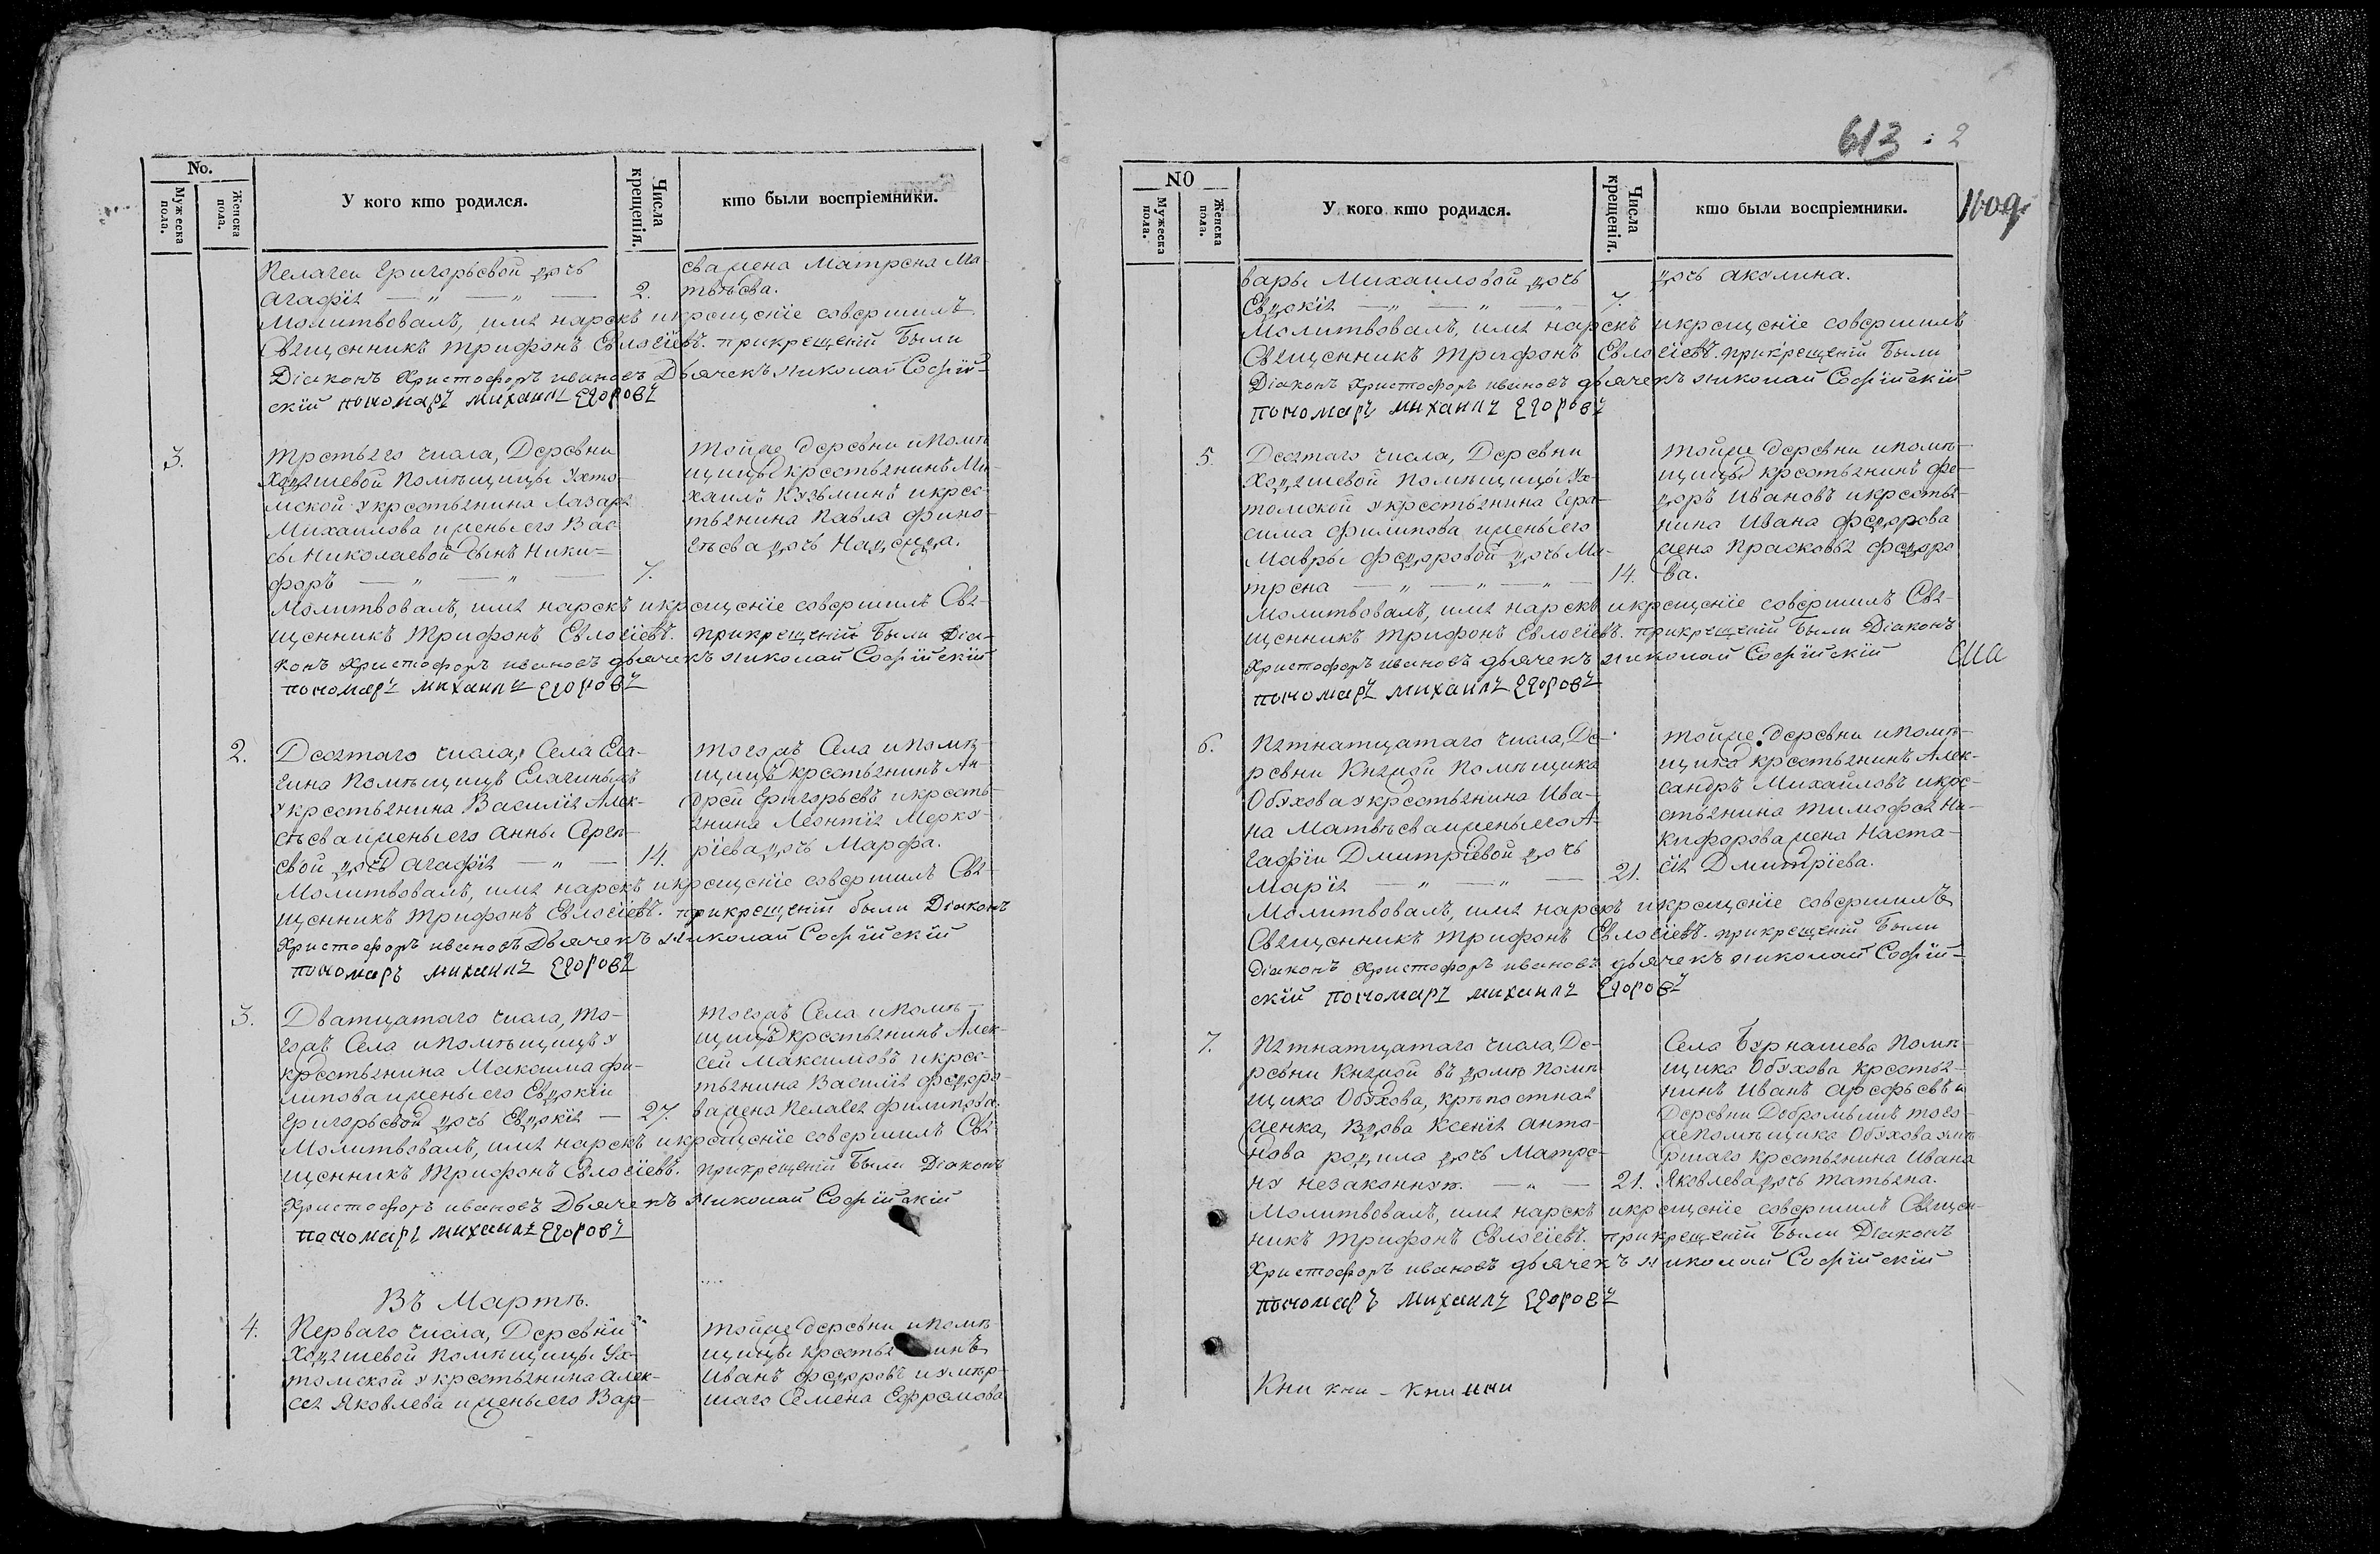 No.
Мужеска пола.
Женска пола.
У кого кто родился.
Числа крещенія.
кто были воспріемники.
Пелагеи Григорьевой дочь
Агафія — " — " — 2.
Молитвовалъ, имя нарекъ икрещеніе совершилъ
Священникъ Трифонъ Евлогіевъ. прикрещеніи Были
Діаконъ Христофоръ ивановъ Дьячекъ николай Софій-
скій пономарь михаилъ Егоровъ
ева жена Матрена Ма
твѣева.
3.
Третьяго числа, Деревни
Ходяшевой Помѣщицы Ухто-
мской у крестьянина Лазаря
Михаилова и жены его Вас
сы Николаевой сынъ Ники=
форъ — " — " — 7.
тойже деревни ипомѣ
щицы крестьянинъ Ми-
хаилъ Кузьминъ икрес-
тьянина Павла фино-
геѣва дочь Надежда.
Молитвовалъ, имя нарекъ икрещеніе совершилъ Свя-
щенникъ Трифонъ Евлогіевъ. прикрещеніи Были Діа-
конъ Христофоръ ивановъ дьячекъ николай Софійскій
пономарь михаилъ Егоровъ
2.
Десятаго числа, Села Ела-
гина Помѣщицъ Елагиныхъ
у крестьянина Василія Алек-
сѣева ижены его Анны Серге-
евой дочь Агафія — " — 14.
тогожъ Села ипомѣ-
щицъ крестьянинъ Ан-
дрей Григорьевъ икресть-
янина Леонтія Мерку-
ріева дочь Марфа.
Молитвовалъ, имя нарекъ икрещеніе совершилъ Свя-
щенникъ Трифонъ Евлогіевъ. прикрещеніи были Діаконъ
Христофоръ ивановъ Дьячекъ николай Софійскій
пономарь михаилъ Егоровъ
3.
Дватцатаго числа, то-
гожъ Села ипомѣщицъ у
крестьянина Максима фи-
липова ижены его Евдокіи
Григорьевой дочь Евдокія — 27.
тогожъ Села ипомѣ-
щицъ крестьянинъ Алек-
сей Максимовъ икрес-
тьянина Василія федоро-
ва жена Пелагея филипова.
Молитвовалъ, имя нарекъ икрещеніе совершилъ Свя-
щенникъ Трифонъ Евлогіевъ. прикрещеніи Были Діаконъ
Христофоръ ивановъ Дьячекъ николай Софійскій
пономарь михаилъ Егоровъ
Въ Мартѣ.
4.
Перваго числа, Деревни
Ходяшевой помѣщицы Ух-
томской у крестьянина Алек-
сея Яковлева ижены его Вар-
тойже деревни ипомѣ
щицы крестьянинъ
Иванъ федоровъ иумер-
шаго Семена Ефремова
613
2
NO
Мужеска пола.
Женска пола.
У кого кто родился.
Числа крещенія.
кто были воспріемники.
вары Михаиловой дочь
Евдокія — " — " — 7.
дочь Акулина.
Молитвовалъ, имя нарекъ икрещеніе совершилъ
Священникъ Трифонъ Евлогіевъ. прикрещеніи Были
Діаконъ Христофоръ ивановъ дьячекъ николай Софійскій
пономарь михаилъ Егоровъ
5.
Десятаго числа, Деревни
Ходяшевой помѣщицы Ух-
томской у крестьянина Гера-
сима филипова ижены его
Мавры федоровой дочь Ма-
трена — " — " — " — 14.
тойже деревни ипомѣ-
щицы крестьянинъ фе-
доръ Ивановъ икрестья-
нина Ивана федорова
жена Прасковья федоро
ва.
Молитвовалъ, имя нарекъ икрещеніе совершилъ Свя-
щенникъ Трифонъ Евлогіевъ. прикрещеніи Были Діаконъ
Христофоръ ивановъ дьячекъ николай Софійскій
пономарь михаилъ Егоровъ
6.
Пятнатцатаго числа, Де-
ревни Княжой Помѣщика
Обухова у крестьянина Ива-
на Матвѣева ижены его А-
гафіи Дмитріевой дочь
Марія — " — " — 21.
тойже деревни ипомѣ-
щика крестьянинъ Алек-
сандръ Михайловъ икре-
стьянина Тимофея Ни-
кифорова жена Наста-
сія Дмитріева.
Молитвовалъ, имя нарекъ икрещеніе совершилъ
Священникъ Трифонъ Евлогіевъ. прикрещеніи Были
Діаконъ Христофоръ ивановъ дьячекъ николай Софій-
скій пономарь михаилъ Егоровъ
7.
Пятнатцатаго числа, Де-
ревни Княжой въ домѣ Помѣ
щика Обухова, крѣпостная
женка, Вдова Ксенія Анто-
нова родила дочь Матре-
ну незаконную. — " — 21.
Села Бурнашева Помѣ-
щика Обухова крестья-
нинъ Иванъ Арефьевъ и
Деревни Добромылиѣ того-
жепомѣщика Обухова уме-
ршаго крестьянина Ивана
Яковлева дочь Татьяна.
Молитвовалъ, имя нарекъ икрещеніе совершилъ Священ-
никъ Трифонъ Евлогіевъ. прикрещеніи Были Діаконъ
Христофоръ ивановъ дьячекъ николай Софійскій
пономарь михаилъ Егоровъ